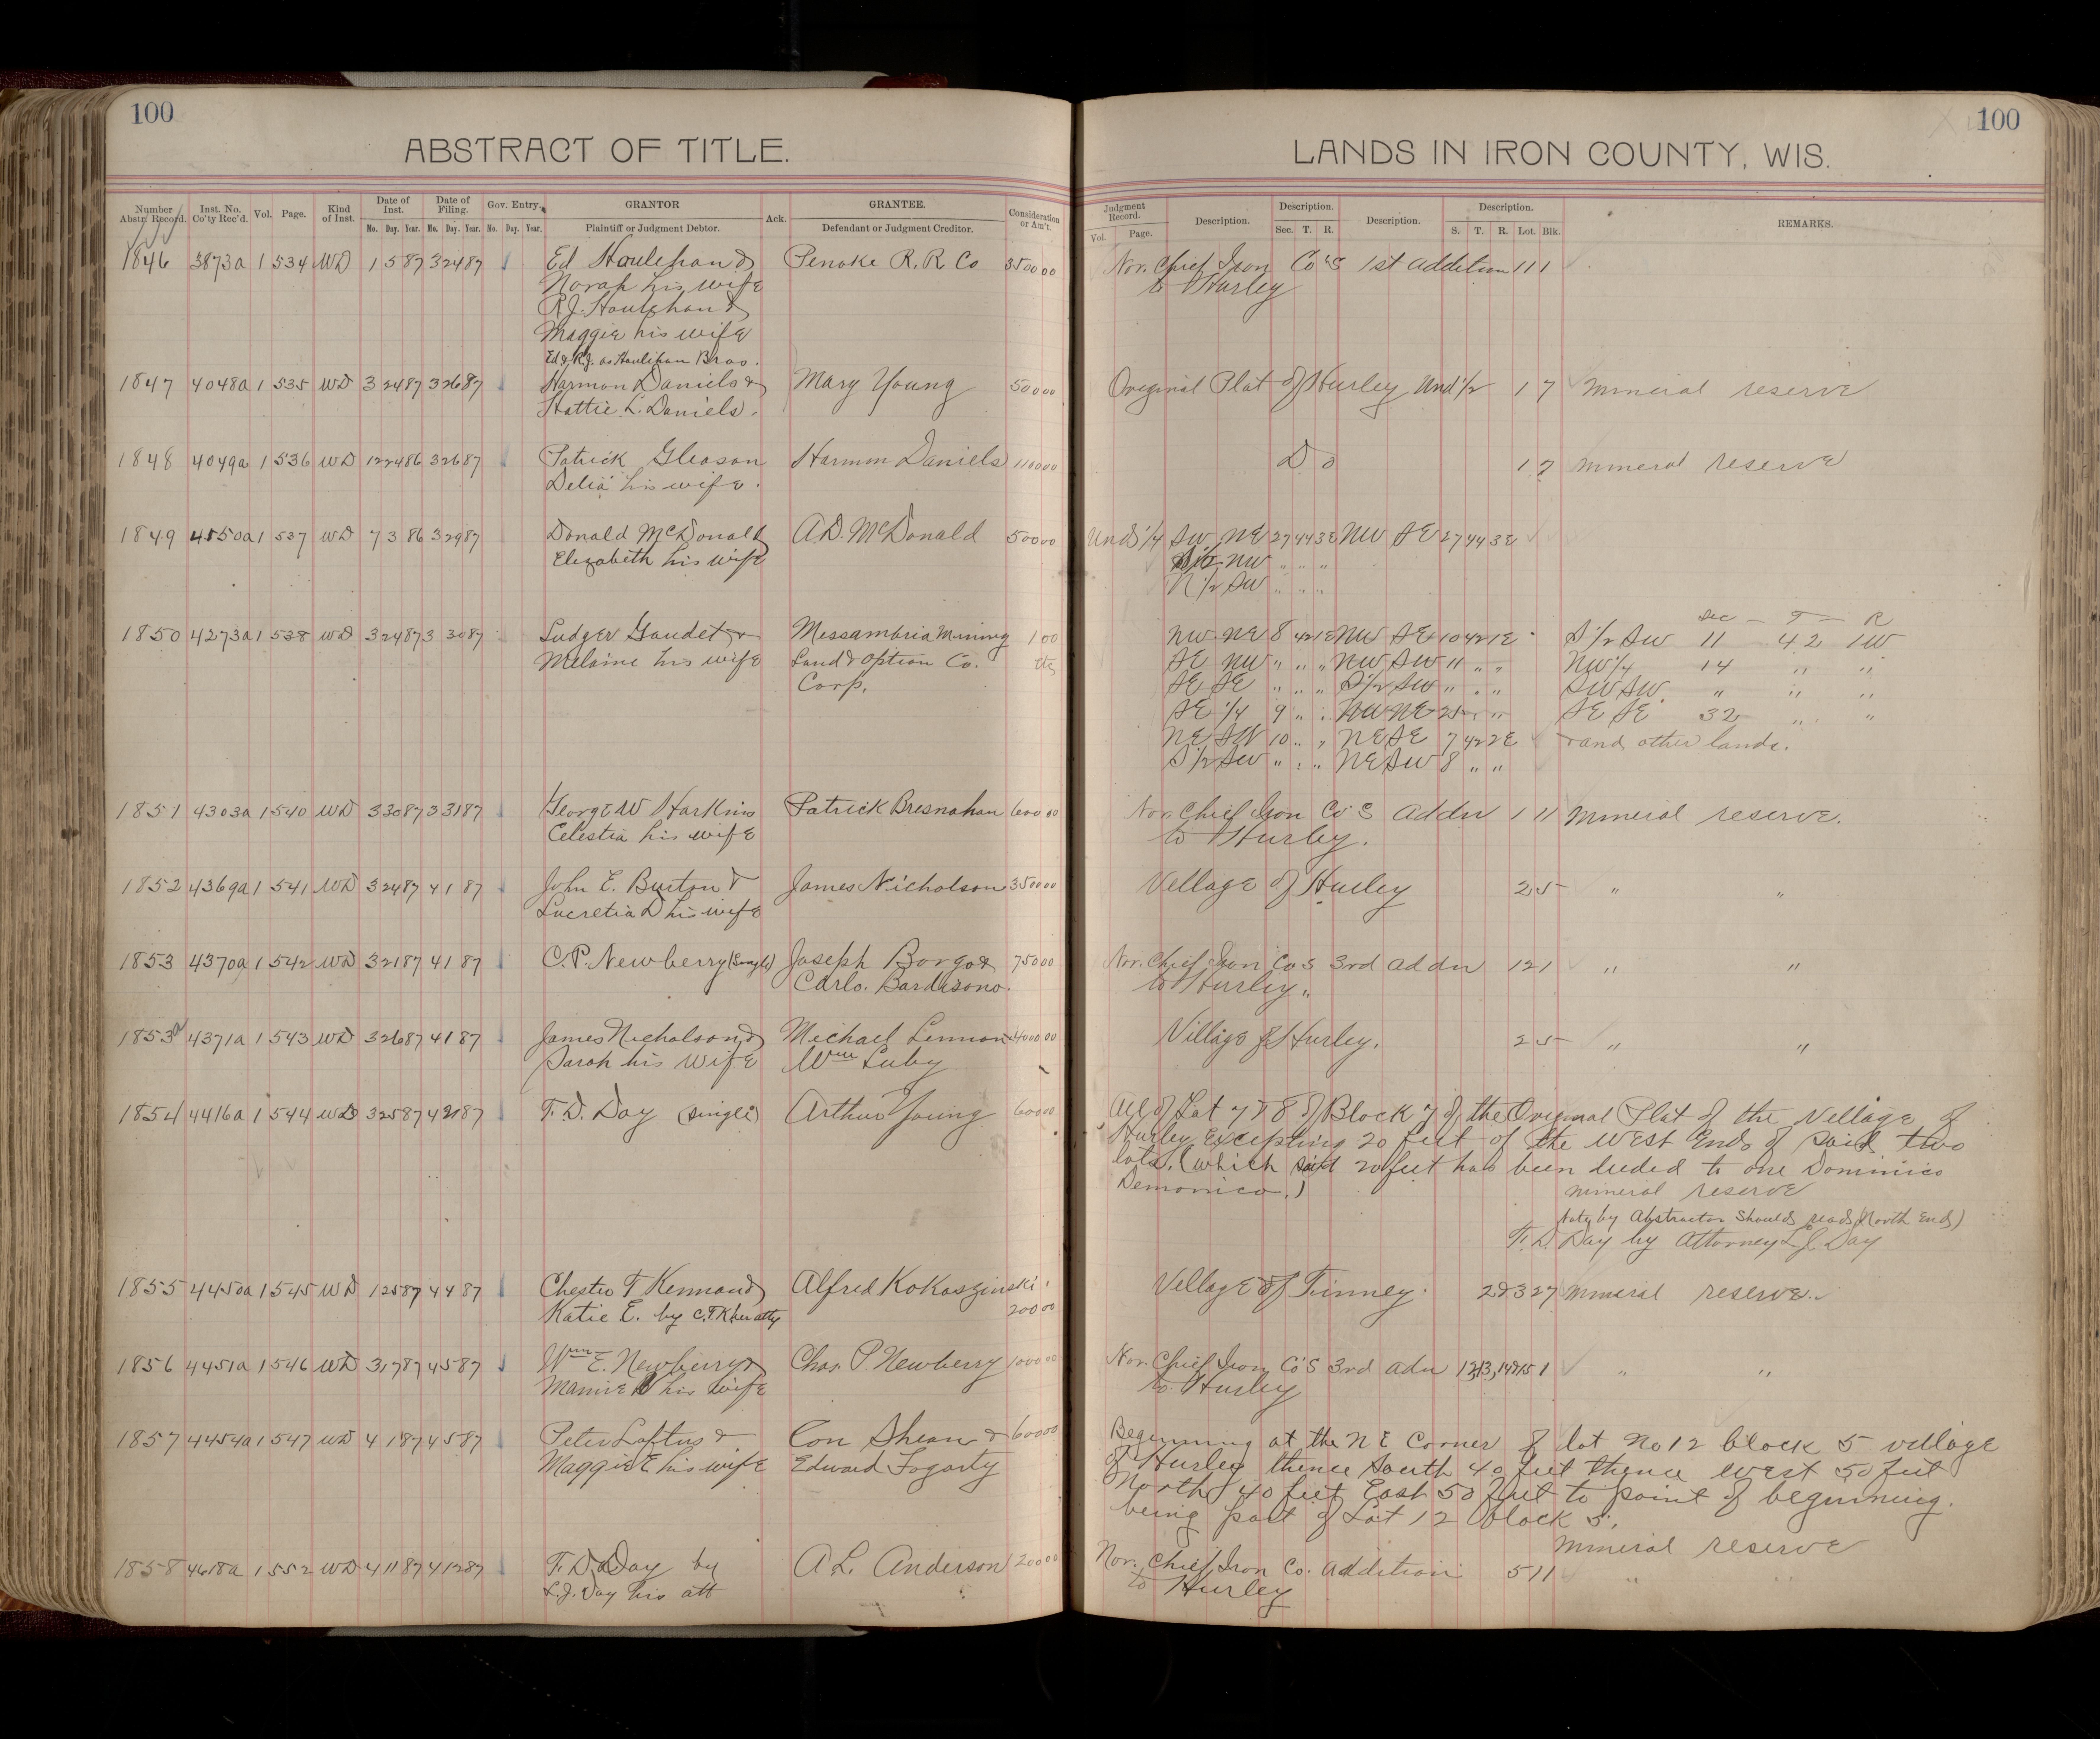 100
ABSTRACT OF TITLE.
Number Abstr. Record. Inst. No. Co'ty Rec'd. Vol. Page. Kind of Inst. Date of Inst. Date of Filing. Gov. Entry. GRANTOR Ack. GRANTEE. Consideration or Am't.
Mo. Day. Year. Mo. Day. Year. Mo. Day. Year. Plaintiff or Judgment Debtor. Defendant or Judgment Creditor.
1846 3873a 1 534 WD 1 5 87 3 24 87 Ed Houlehan & Penoke R. R Co 3500 00
Norah his wife
R.J. Houlehan &
Maggie his wife
Ed & R.J. as Houlihan Bros.
1847 4048a 1 535 WD 3 24 87 3 26 87 Harmon Daniels & Mary Young 500 00
Hattie L. Daniels.
1848 4049a 1 536 WD 12 24 86 3 26 87 Patrick Gleason Harmon Daniels 1100 00
Delia his wife.
1849 4550a 1 537 WD 7 3 86 3 29 87 Donald McDonald A.D. McDonald 500 00
Elizabeth his wife
1850 4273a 1 538 WD 3 24 87 3 30 87 Ludger Gaudet & Messambria Mining 1 00
Melaine his wife Land & Option Co.
Corp.
1851 4303a 1 540 WD 3 30 87 3 31 87 George W Harkins Patrick Bresnahan 600 00
Celestia his wife
1852 4369a 1 541 WD 3 24 87 4 1 87 John E. Burton & James Nicholson 3500 00
Lucretia D his wife
1853 4370a 1 542 WD 3 21 87 4 1 87 C.P. Newberry (Single) Joseph Borgo & 750 00
Carlo. Bardisono.
1853a 4371a 1 543 WD 3 26 87 4 1 87 James Nicholson & Michael Lennon 4000 00
Sarah his wife Wm Luby
1854 4416a 1 544 WD 3 25 87 4 2 87 T. D. Day (single) Arthur Young 600 00
1855 4450a 1 545 WD 1 25 87 4 4 87 Chester T Kennan & Alfred Kokaszinski
Katie E. by C.T.K her atty 200 00
1856 4451a 1 546 WD 3 17 87 4 5 87 Wm E. Newberry & Chas. P. Newberry 1000 00
Mamie his wife
1857 4454a 1 547 WD 4 1 87 4 5 87 Peter Loftus & Con Shean & 600 00
Maggie E his wife Edward Fogarty
1858 4618a 1 552 WD 4 11 87 4 12 87 T. D. Day by A L. Anderson 200 00
L.J. Day his att
100
LANDS IN IRON COUNTY, WIS.
Judgment Record. Description. Description. Description. Description. REMARKS.
Vol. Page. Sec. T. R. S. T. R. Lot. Blk.
Nor. Chief Iron Co's 1st addition 11 1
to Hurley
Original Plat of Hurley Und 1/2 1 7 mineral reserve
Do 1 7 mineral reserve
Und 1/4 SW NE 27 44 3E NW SE 27 44 3E
S 1/2 NW " " "
N 1/2 SW " " "
Sec T R
NW NE 8 42 1E NW SE 10 42 1E S 1/2 SW 11 42 1W
SE NW " " " NW SW 11 " " NW 1/4 14 " "
SE SE " " " S 1/2 SW " " " SW SW " " "
SE 1/4 9 " " NW NE 25 " " SE SE 32 " "
NE SW 10 " " NE SE 7 42 2E & and other lands.
S 1/2 SW " " " NE SW 8 " "
Nor. Chief Iron Co's addn 1 11 mineral reserve.
to Hurley.
Village of Hurley 2 5 " "
Nor. Chief Iron Co's 3rd addn 12 1 " "
to Hurley.
Village of Hurley. 2 5 " "
All of Lot 7 & 8 of Block 7 of the Original Plat of the Village of
Hurley Excepting 20 feet of the West Ends of said two
lots. (which said 20 feet has been deeded to one Dominico
Demonico.)
mineral reserve
Note by Abstractor Should read (North Ends)
T. D. Day by Attorney L J. Day
Village of Finney. 2 & 3 27 mineral reserve.
Nor. Chief Iron Co's 3rd adn 12,13,14&15 1 " "
to Hurley
Beginning at the N E Corner of lot No 12 block 5 village
of Hurley thence South 40 feet thence west 50 feet
North 40 feet East 50 feet to point of beginning.
being part of Lot 12 block 5.
mineral reserve
Nor. Chief Iron Co. addition 5 11 " "
to Hurley